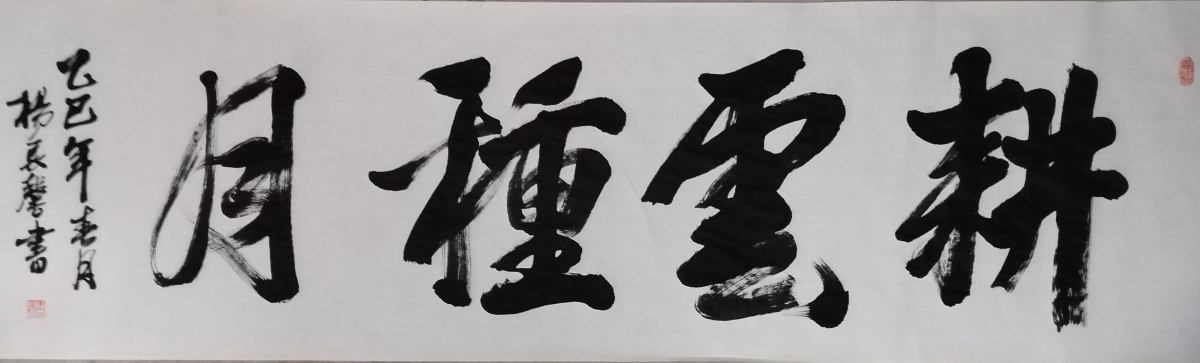 耕雲種月
乙巳年春月
楊長馨書